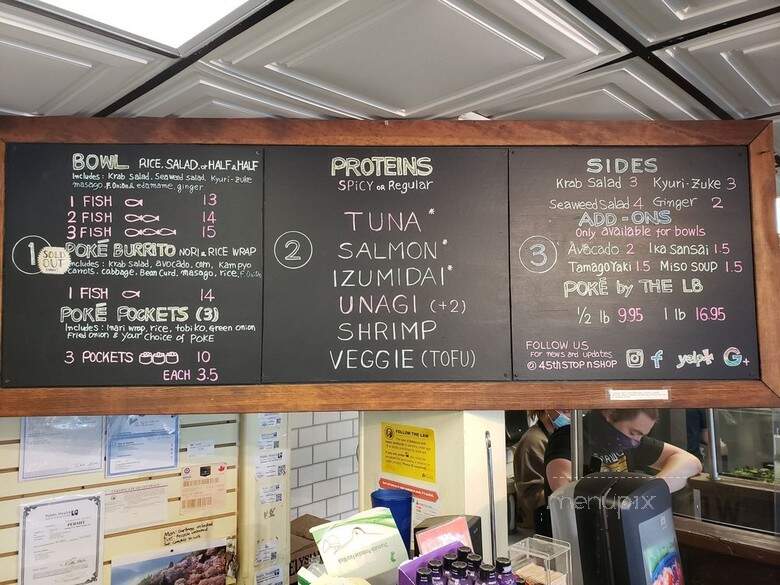 BOWL RICE, SALAD, or HALF & HALF
Includes: Krab Salad, Seaweed salad, Kyuri-zuke
masago, F.Onion & edamame, ginger
1 FISH 13
2 FISH 14
3 FISH 15
1
SOLD OUT
POKÉ BURRITO NORI & RICE WRAP
Includes: Krab salad, avocado, corn, Kampyo
carrots, cabbage, Bean Curd, masago, rice, F.Onion
1 FISH 14
POKÉ POCKETS (3)
Includes: Inari wrap, rice, tobiko, Green onion
Fried onion & your choice of POKE
3 POCKETS 10
EACH 3.5
PROTEINS
SPICY OR Regular
2
TUNA*
SALMON*
IZUMIDAI*
UNAGI (+2)
SHRIMP
VEGGIE (TOFU)
SIDES
Krab Salad 3 Kyuri-Zuke 3
Seaweed Salad 4 Ginger 2
ADD-ONS
Only available for bowls
3
Avocado 2 Ika Sansai 1.5
Tamagoyaki 1.5 Miso soup 1.5
POKÉ by THE LB
1/2 lb 9.95 1 lb 16.95
FOLLOW US
For news and updates
@ 45th STOP N SHOP
f yelp G+
FOLLOW THE LAW
PERMIT
menupix